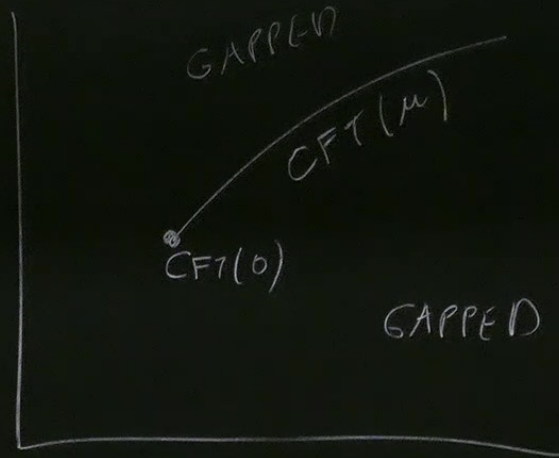 GAPPED
CFT(μ)
CFT(0)
GAPPED